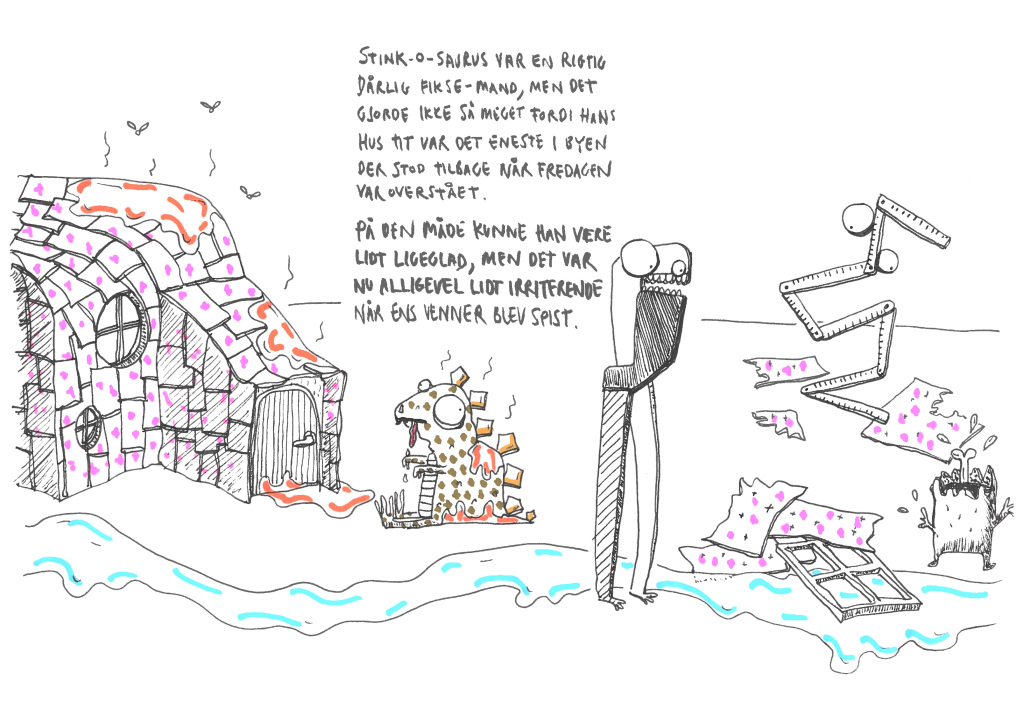 STINK-O-SAURUS VAR EN RIGTIG
DÅRLIG FIKSE-MAND, MEN DET
GJORDE IKKE SÅ MEGET FORDI HANS
HUS TIT VAR DET ENESTE I BYEN
DER STOD TILBAGE NÅR FREDAGEN
VAR OVERSTÅET.
PÅ DEN MÅDE KUNNE HAN VÆRE
LIDT LIGEGLAD, MEN DET VAR
NU ALLIGEVEL LIDT IRRITERENDE
NÅR ENS VENNER BLEV SPIST.